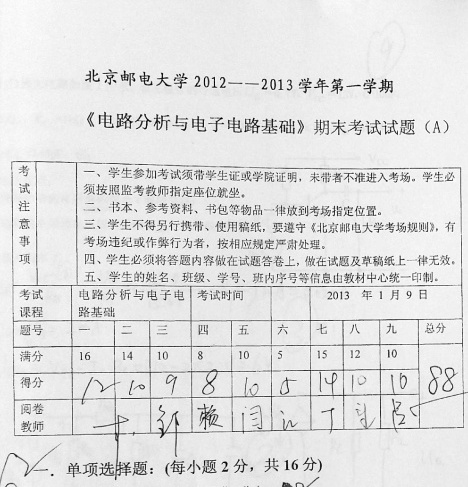 北京邮电大学2012——2013学年第一学期
《电路分析与电子电路基础》期末考试试题（A）
考试注意事项
一、学生参加考试须带学生证或学院证明，未带者不准进入考场。学生必
须按照监考教师指定座位就坐。
二、书本、参考资料、书包等物品一律放到考场指定位置。
三、学生不得另行携带、使用稿纸，要遵守《北京邮电大学考场规则》，有
考场违纪或作弊行为者，按相应规定严肃处理。
四、学生必须将答题内容做在试题答卷上，做在试题及草稿纸上一律无效。
五、学生的姓名、班级、学号、班内序号等信息由教材中心统一印制。
考试课程 电路分析与电子电路基础 考试时间 2013 年 1 月 9 日
题号 一 二 三 四 五 六 七 八 九 总分
满分 16 14 10 8 10 5 15 12 10
得分 12 10 9 8 10 5 14 10 10 88
阅卷教师 邹 赖 闫 丁
一．单项选择题：（每小题 2 分，共 16 分）